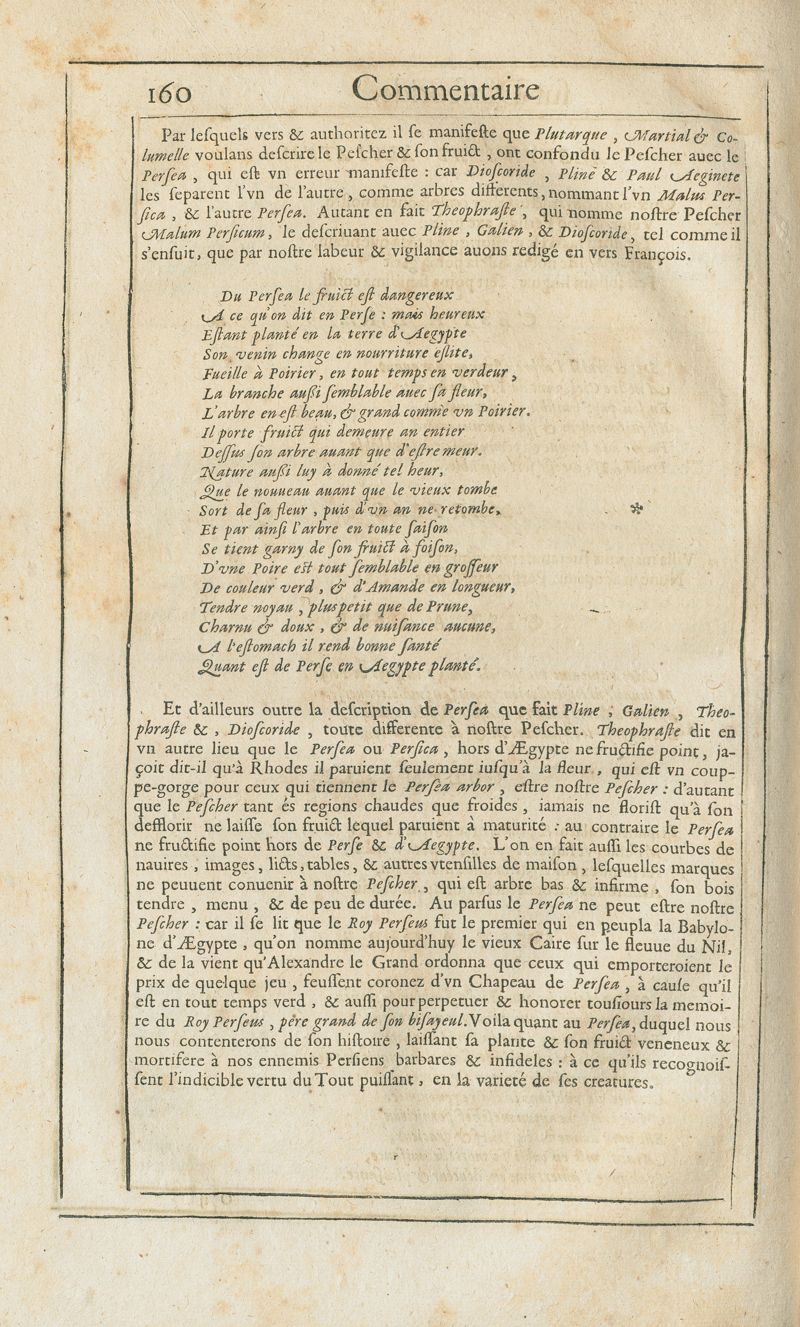 160 Commentaire
Par leſquels vers & authoritez il ſe manifeſte que Plutarque , Martial & Co-
lumelle voulans deſcrire le Peſcher & ſon fruict , ont confondu le Peſcher auec le
Perſea , qui eſt vn erreur manifeſte : car Dioſcoride , Pline & Paul Aeginete
les ſeparent l'vn de l'autre , comme arbres differents, nommant l'vn Malus Per-
ſica , & l'autre Perſea. Autant en fait Theophraſte , qui nomme noſtre Peſcher
Malum Perſicum, le deſcriuant auec Pline , Galien , & Dioſcoride, tel comme il
s'enſuit, que par noſtre labeur & vigilance auons redigé en vers François.
Du Perſea le fruict eſt dangereux
A ce qu'on dit en Perſe : mais heureux
Eſtant planté en la terre d'Aegypte
Son venin change en nourriture eſlite,
Fueille à Poirier, en tout temps en verdeur,
La branche außi ſemblable auec ſa fleur,
L'arbre en eſt beau, & grand comme vn Poirier.
Il porte fruict qui demeure an entier
Deſſus ſon arbre auant que d'eſtre meur.
Nature außi luy à donné tel heur,
Que le nouueau auant que le vieux tombe
Sort de ſa fleur , puis d'vn an ne retombe, *
Et par ainſi l'arbre en toute ſaiſon
Se tient garny de ſon fruict à foiſon,
D'vne Poire eſt tout ſemblable en groſſeur
De couleur verd , & d'Amande en longueur,
Tendre noyau , plus petit que de Prune,
Charnu & doux , & de nuiſance aucune,
A l'eſtomach il rend bonne ſanté
Quant eſt de Perſe en Aegypte planté.
Et d'ailleurs outre la deſcription de Perſea que fait Pline , Galien , Theo-
phraſte & , Dioſcoride , toute differente à noſtre Peſcher. Theophraſte dit en
vn autre lieu que le Perſea ou Perſica , hors d'Ægypte ne fructifie point, ja-
çoit dit-il qu'à Rhodes il paruient ſeulement iuſqu'à la fleur , qui eſt vn coup-
pe-gorge pour ceux qui tiennent le Perſea arbor , eſtre noſtre Peſcher : d'autant
que le Peſcher tant és regions chaudes que froides , iamais ne floriſt qu'à ſon
defflorir ne laiſſe ſon fruict lequel paruient à maturité : au contraire le Perſea
ne fructifie point hors de Perſe & d'Aegypte. L'on en fait auſſi les courbes de
nauires , images, licts, tables, & autres vtenſilles de maiſon , leſquelles marques
ne peuuent conuenir à noſtre Peſcher , qui eſt arbre bas & infirme , ſon bois
tendre , menu , & de peu de durée. Au parſus le Perſea ne peut eſtre noſtre
Peſcher : car il ſe lit que le Roy Perſeus fut le premier qui en peupla la Babylo-
ne d'Ægypte , qu'on nomme aujourd'huy le vieux Caire ſur le fleuue du Nil,
& de la vient qu'Alexandre le Grand ordonna que ceux qui emporteroient le
prix de quelque jeu , feuſſent coronez d'vn Chapeau de Perſea , à cauſe qu'il
eſt en tout temps verd , & auſſi pour perpetuer & honorer touſiours la memoi-
re du Roy Perſeus , pére grand de ſon biſayeul. Voila quant au Perſea, duquel nous
nous contenterons de ſon hiſtoire , laiſſant ſa plante & ſon fruict veneneux &
mortifere à nos ennemis Perſiens barbares & infideles : à ce qu'ils recognoiſ-
ſent l'indicible vertu du Tout puiſſant, en la varieté de ſes creatures.